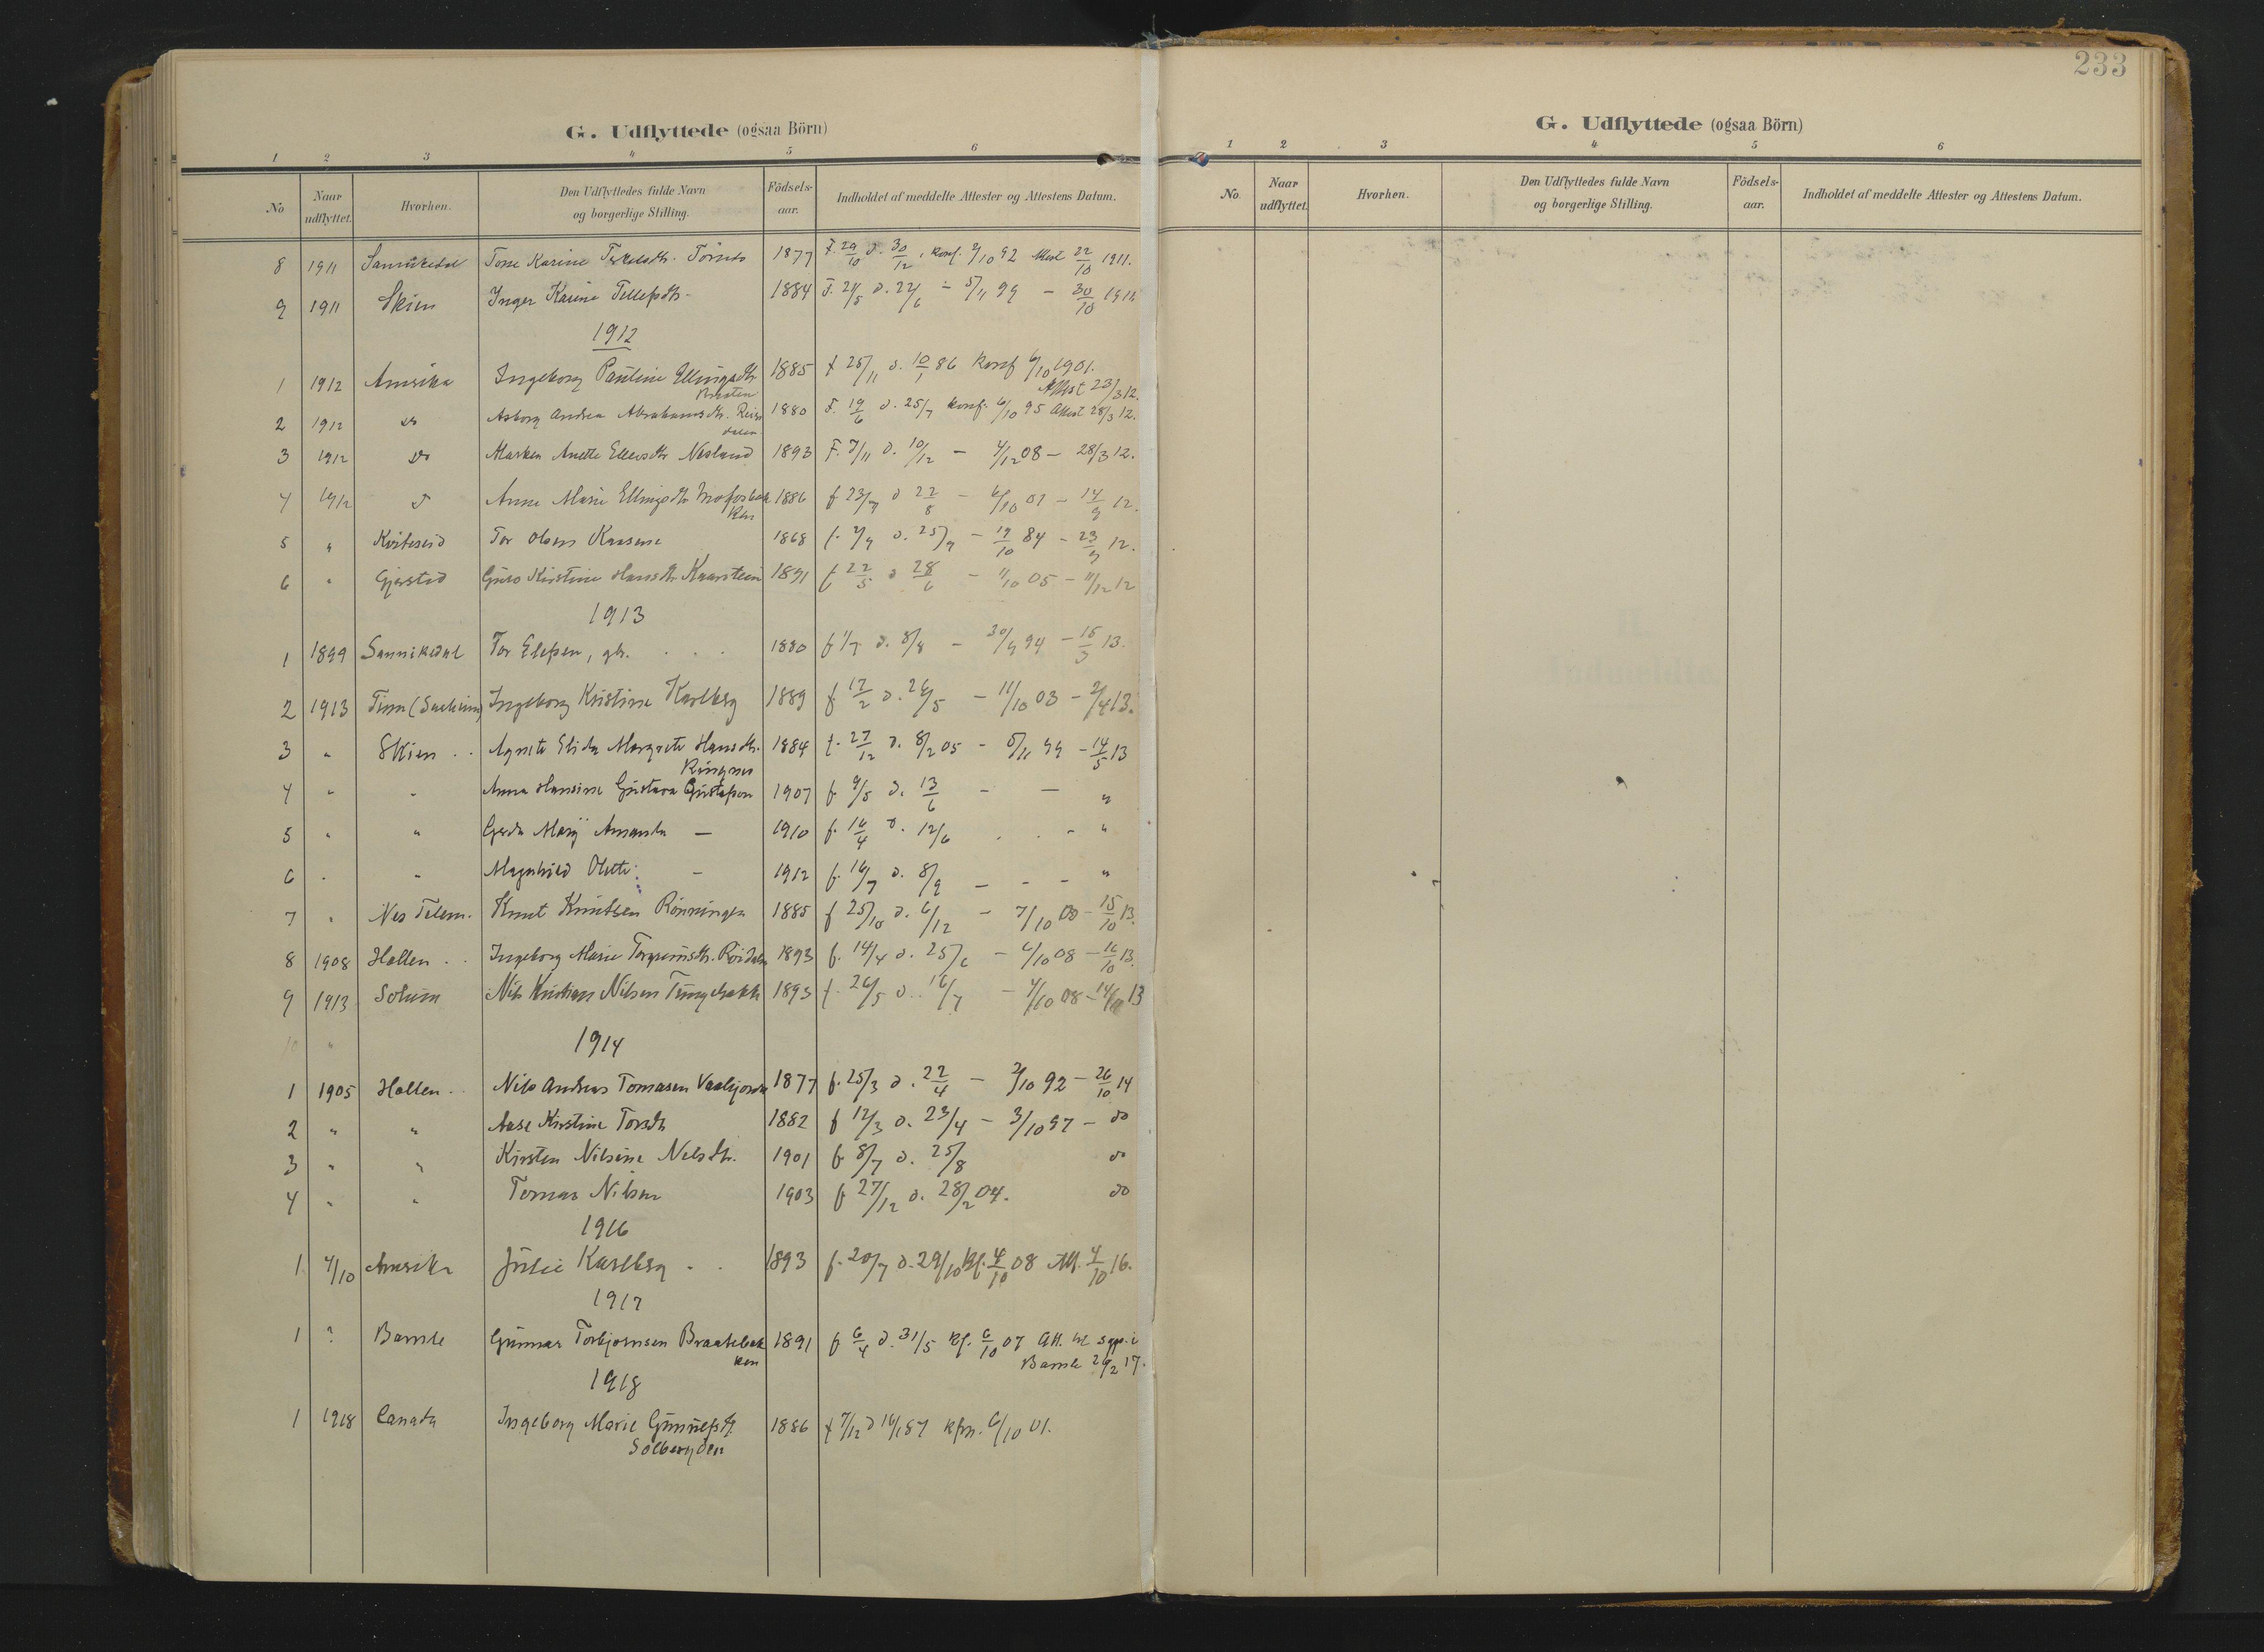 G. Udflyttede (ogsaa Börn)
1 2 3 4 5 6
No Naar udflyttet. Hvorhen. Den Udflyttedes fulde Navn og borgerlige Stilling. Födsels-aar. Indholdet af meddelte Attester og Attestens Datum.
8 1911 Sannikedal Tone Karine 1877 F. 29/10 d. 30/12, konf. 2/10 92 Attest 22/10 1911.
9 1911 Skien Inger Karine Tellefsdtr. 1884 F. 21/5 d. 22/6 - 5/11 99 - 30/10 1911
1912
1 1912 Amerika Ingeborg Pauline Ellingsdtr. 1885 f 25/11 d. 10/1 86 Konf 6/10 1901.
Attest 23/3 12.
2 1912 do Asborg Andrea Abrahamsdtr. 1880 F. 19/6 d. 25/7 konf. 6/10 95 Attest 28/3 12.
3 1912 do Marken Anette Ellevsdtr Nesland 1893 F. 7/11 d. 10/12 - 4/12 08 - 28/3 12.
4 1912 d Anne Marie Ellingsdtr 1886 f 23/7 d 22/8 - 6/10 01 - 14/9 12.
5 " Kviteseid Tor Olsen 1868 f. d. 25/7 - 19/10 84 - 23/9 12.
6 " Gjerstad Guro Kirstine Hansdtr. Kaarstein 1891 f 22/5 d 28/6 - 11/10 05 - 11/12 12
1913
1 1899 Sannikedal Tor Elefsen, gb. . . . 1880 f 1/7 d. 8/8 - 30/9 94 - 15/3 13.
2 1913 Tinn ( Ingeborg Kristine Karlberg 1889 f 12/2 d. 26/5 - 11/10 03 - 2/4 13.
3 " Skien . . Agnete Elida Margrete Hansdtr. 1884 f. 27/12 d. 8/2 05 - 5/11 99 - 14/5 13
Ringnes
4 " " Anna Hansine Gustava Gustafson 1907 f. 9/5 d. 13/6 - - "
5 " " Gerda Mary Amanda - 1910 f. 16/4 d. 12/6 . . - "
6 . " Magnhild Olette - 1912 f. 16/7 d. 8/9 - - - "
7 " Nes Telem. Knut Knutsen Rönningen 1885 f 25/10 d. 6/12 - 7/10 00 - 15/10 13.
8 1908 Hollen . . Ingeborg Marie Torgrimsdtr. 1893 f. 14/4 d. 25/6 - 4/10 08 - 16/10 13.
9 1913 Solum Nils Kristian Nilsen 1893 f. 26/5 d. 16/7 - 4/10 08 - 13
10 "
1914
1 1905 Hollen . . Nils Andreas Tomasen 1877 f. 25/3 d. 22/4 - 2/10 92 - 26/10 14
2 " " Aase Kirstine Torsdtr 1882 f 12/3 d. 23/4 - 3/10 97 - do
3 " " Kirsten Nilsine Nilsdtr. 1901 f 8/7 d. 25/8 do
4 " " Tomas Nilsen 1903 f 27/12 d. 28/2 04. do
1916
1 4/10 Amerika Julie Karlberg . . 1893 f. 20/7 d. 29/10 Kf. 4/10 08 Att. 4/10 16.
1917
1 ? Bamle Gunnar Torbjornsen Braatebakken 1891 f 6/4 d. 31/5 Kf. 6/10 07 Att. til sgpr. i
Bamle 26/2 17.
1918
1 1918 Canada Ingeborg Marie Gunnulfsdtr. 1886 f 7/12 d 16/1 87 kfm. 6/10 01.
233
G. Udflyttede (ogsaa Börn)
1 2 3 4 5 6
No. Naar udflyttet. Hvorhen. Den Udflyttedes fulde Navn og borgerlige Stilling. Födsels-aar. Indholdet af meddelte Attester og Attestens Datum.